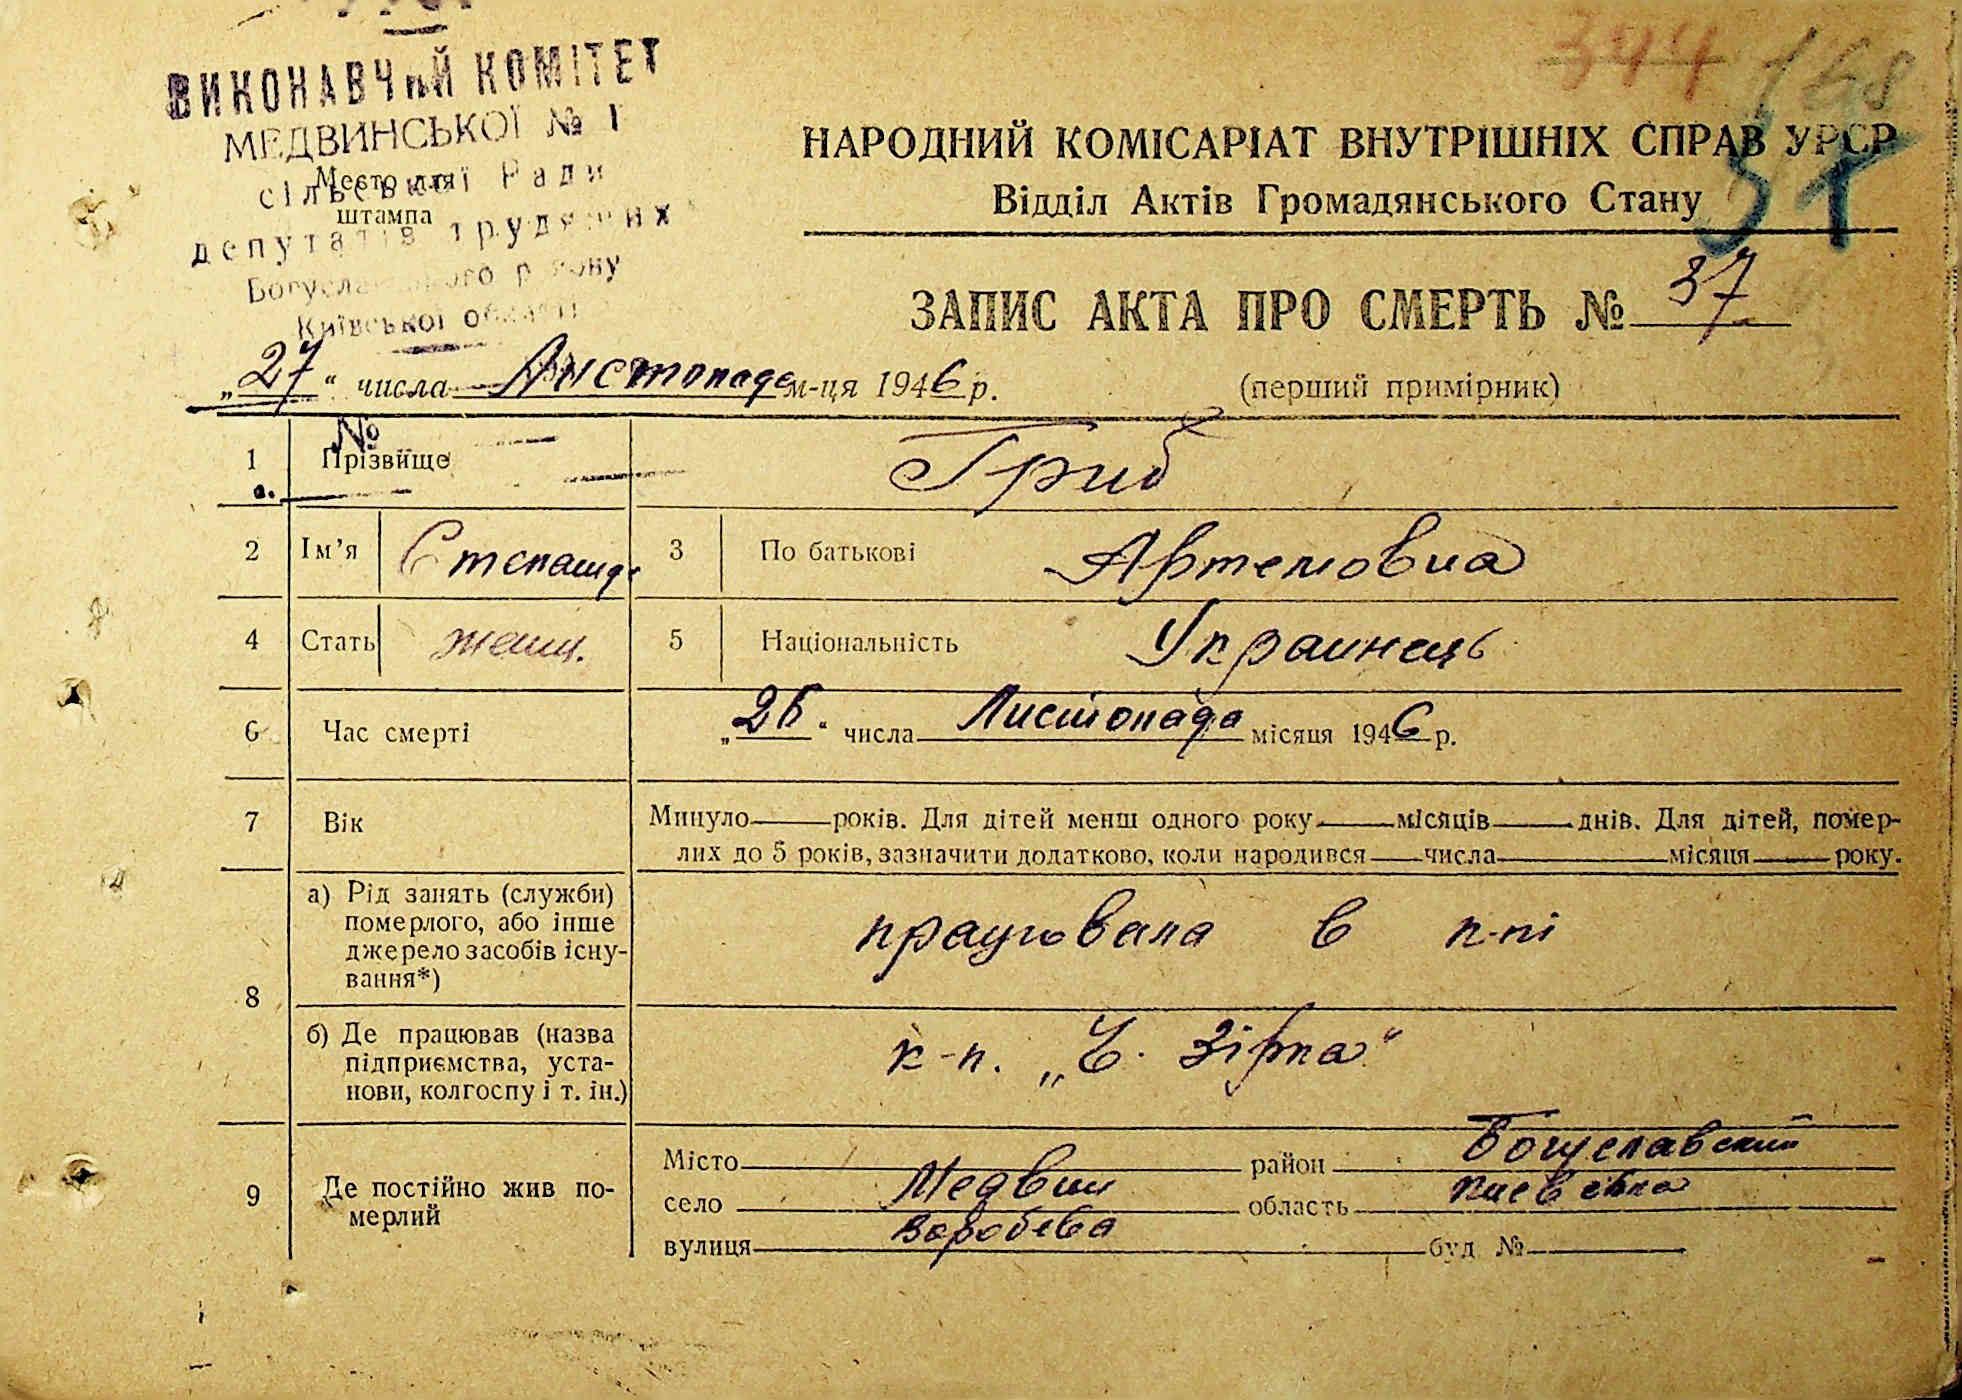 344 168
ВИКОНАВЧИЙ КОМІТЕТ
МЕДВИНСЬКОЇ № 1
сільської Ради
Место для
штампа
депутатів трудящих
Богуславського району
Київської області
31
НАРОДНИЙ КОМІСАРІАТ ВНУТРІШНІХ СПРАВ УРСР
Відділ Актів Громадянського Стану
ЗАПИС АКТА ПРО СМЕРТЬ № 37
„27“ числа Листопада м-ця 1946 р.
(перший примірник)
№
1 Прізвище Гриб
2 Ім’я Степанида 3 По батькові Артемовна
4 Стать женщ. 5 Національність Украинець
6 Час смерті „26“ числа Листопада місяця 1946 р.
7 Вік Минуло років. Для дітей менш одного року місяців днів. Для дітей, помер-
лих до 5 років, зазначити додатково, коли народився числа місяця року.
8 а) Рід занять (служби)
померлого, або інше
джерело засобів існу-
вання*)
працювала в к-пі
б) Де працював (назва
підприємства, уста-
нови, колгоспу і т. ін.)
к-п. „Ч. Зірка“
9 Де постійно жив по-
мерлий
Місто район Богуславский
село Медвин область Киевська
вулиця Воробева буд №